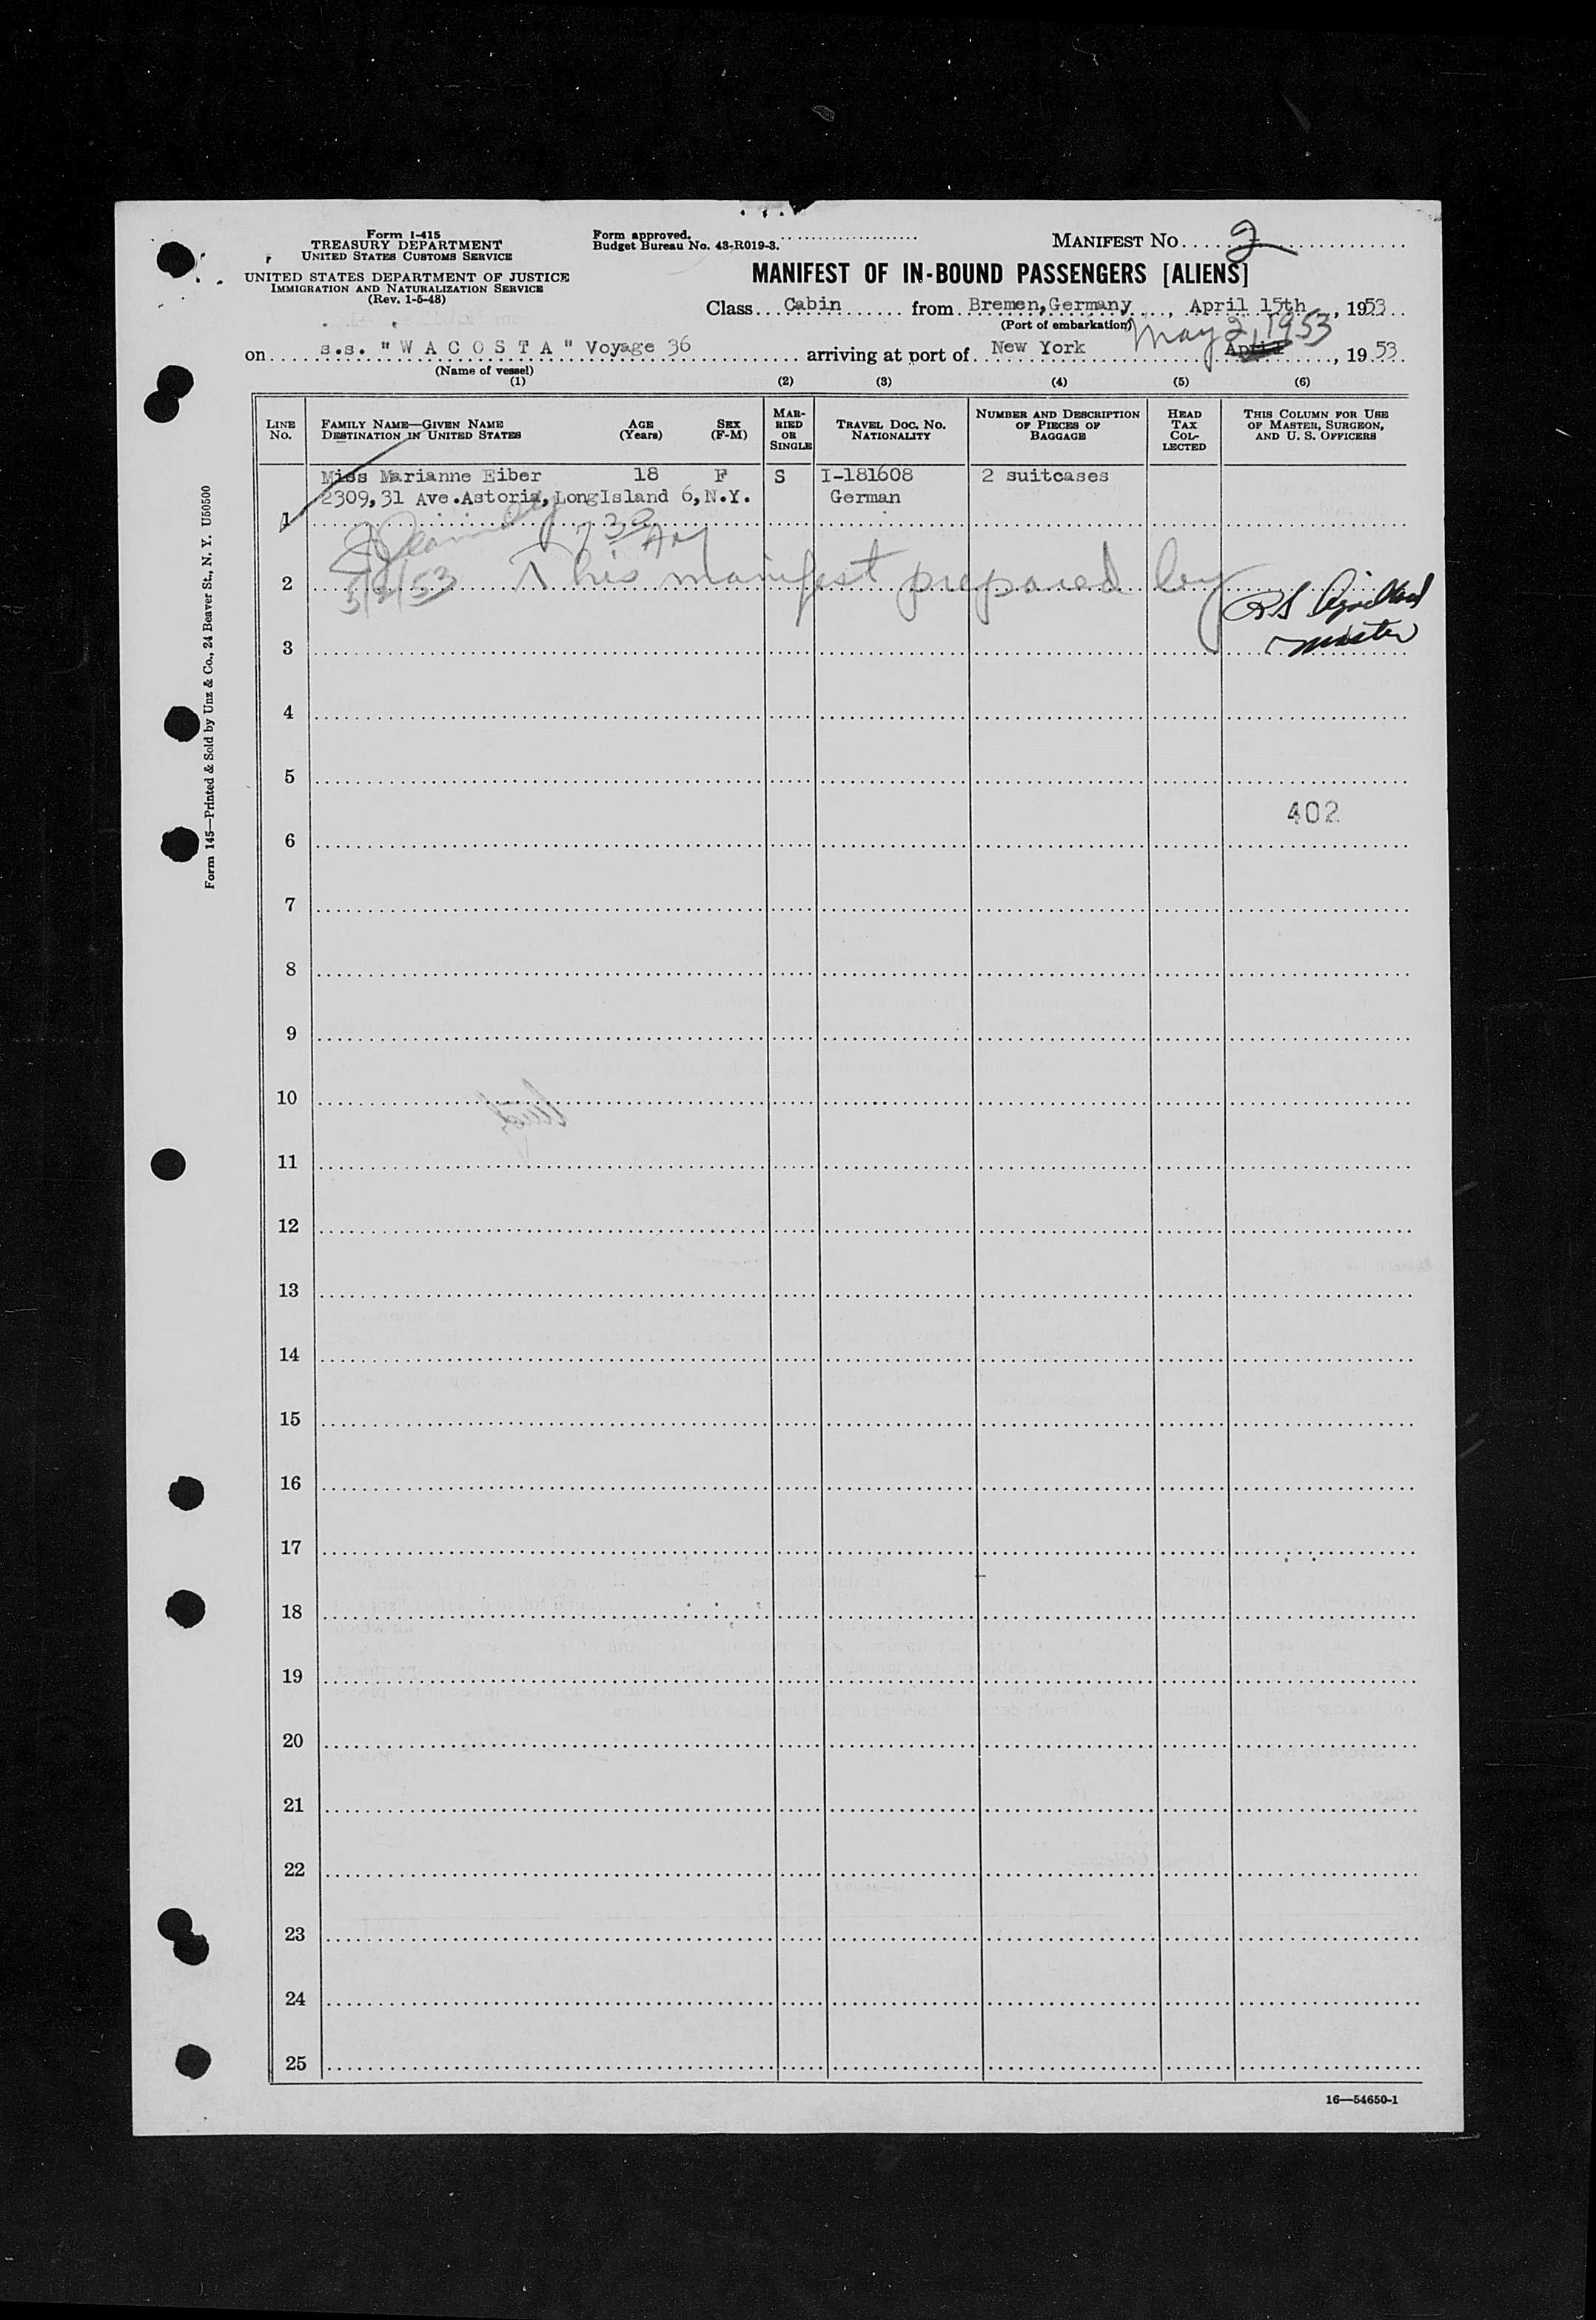 Form I-415
TREASURY DEPARTMENT
UNITED STATES CUSTOMS SERVICE
UNITED STATES DEPARTMENT OF JUSTICE
IMMIGRATION AND NATURALIZATION SERVICE
(Rev. 1-5-48)
Form approved.
Budget Bureau No. 43-R019-3.
MANIFEST NO. 2
MANIFEST OF IN-BOUND PASSENGERS [ALIENS]
Class Cabin from Bremen, Germany, April 15th, 1953
(Port of embarkation)
May 2, 1953
on s.s. "WACOSTA" Voyage 36 arriving at port of New York April, 1953
(Name of vessel)
(1) (2) (3) (4) (5) (6)
LINE NO.
FAMILY NAME—GIVEN NAME
DESTINATION IN UNITED STATES
AGE (Years)
SEX (F-M)
MARRIED OR SINGLE
TRAVEL DOC. NO. NATIONALITY
NUMBER AND DESCRIPTION OF PIECES OF BAGGAGE
HEAD TAX COLLECTED
THIS COLUMN FOR USE OF MASTER, SURGEON, AND U. S. OFFICERS
Miss Marianne Eiber 18 F S I-181608 2 suitcases
2309,31 Ave.Astoria, LongIsland 6,N.Y. German
1
7 30 AM
2 5/2/53 This manifest prepared by
Master
3
4
5
402
6
7
8
9
10
11
12
13
14
15
16
17
18
19
20
21
22
23
24
25
16—54650-1
Form 145—Printed & Sold by Unz & Co., 24 Beaver St., N. Y. U50500